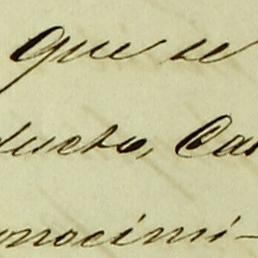 que se
ducto, Ca
onocimi-